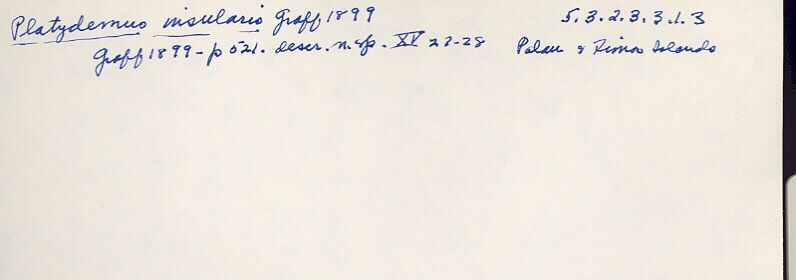 Platydemus insularis Graff 1899 5.3.2.3.3.1.3
Graff 1899 - p 521. descr. n. sp. XV 27-28 Palau & Timor Islands